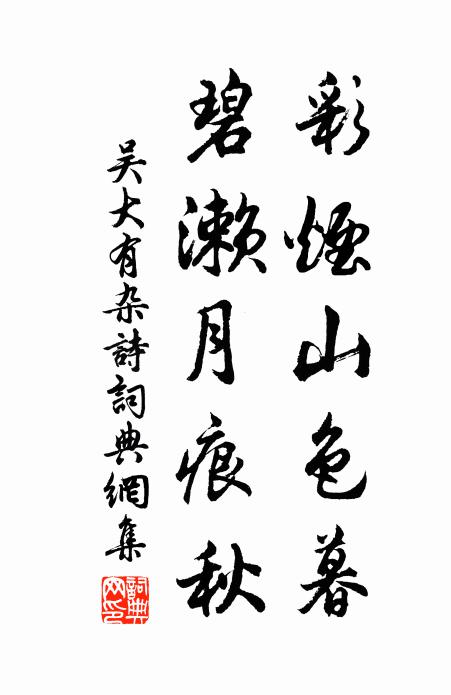 彩煙山色暮
碧瀨月痕秋
吴大有杂詩詞典網集
詞典网印